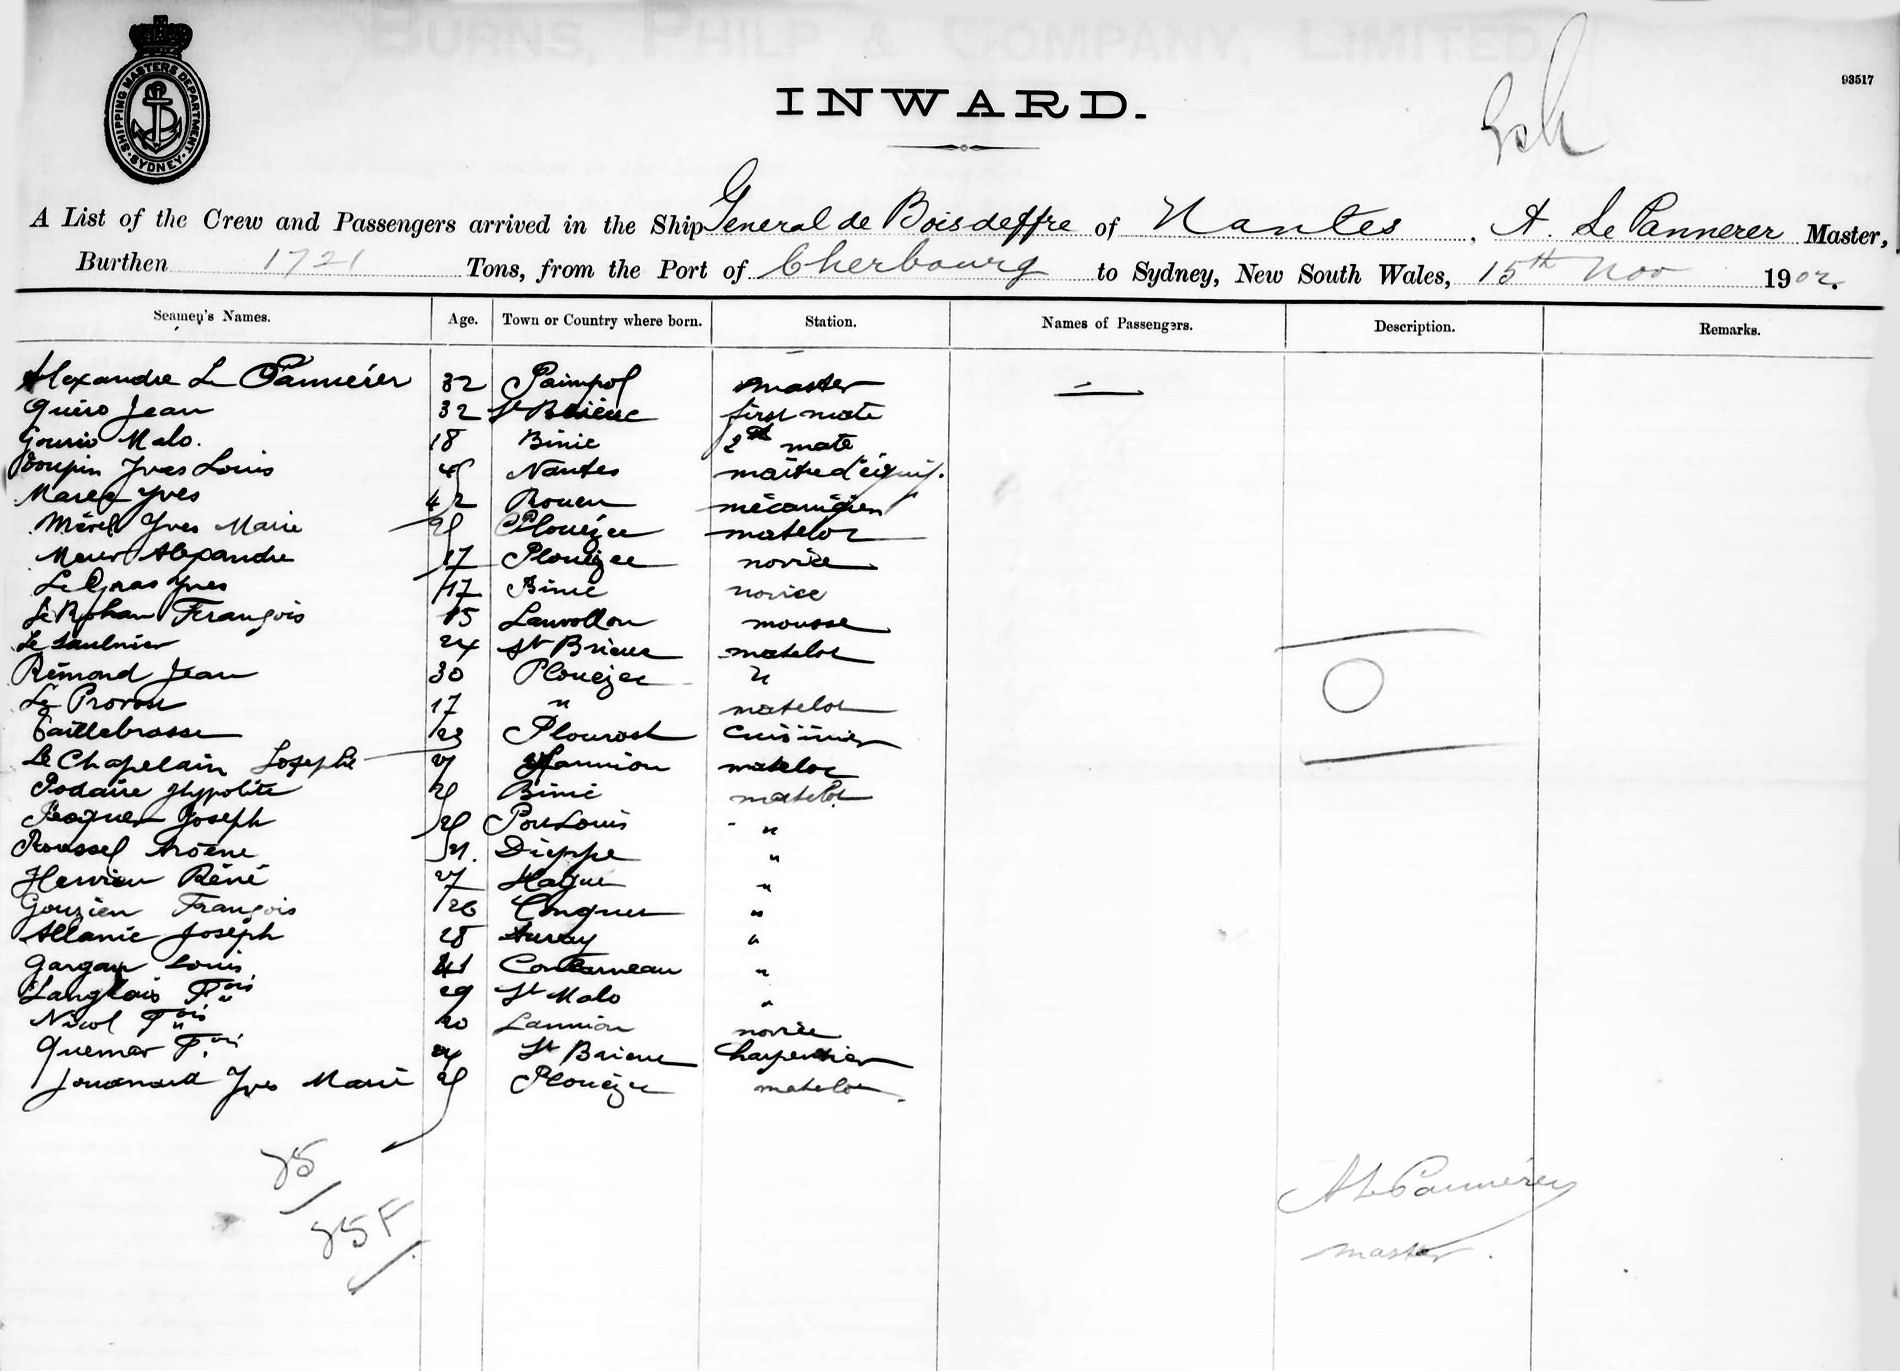 BURNS, PHILP & COMPANY, LIMITED
SHIPPING MASTERS DEPARTMENT
SYDNEY
93517
INWARD.
A List of the Crew and Passengers arrived in the Ship General de Boisdeffre of Nantes, A. Le Pannerer Master,
Burthen 1721 Tons, from the Port of Cherbourg to Sydney, New South Wales, 15th Nov 1902.
Seamen's Names. Age. Town or Country where born. Station. Names of Passengers. Description. Remarks.
Alexandre Le Pannérer 32 Paimpol master
Quéro Jean 32 St Brieuc first mate
Gourio Malo. 18 Binic 2nd mate
Toupin Yves Louis Nantes maître d'équip.
Marec Yves 42 Rouen mécanicien
Yves Marie Plouézec matelot
Alexandre 17 Plouézec novice
Le Gras Yves 17 Binic novice
François 15 Lanvollon mousse
Le Saulnier 24 St Brieuc matelot
Rémond Jean 30 Plouézec "
Le Provost 17 " matelot
Taillebrosse 23 cuisinier
Le Chapelain Josephe 27 Lannion matelot
Rodaire Hypolite Binic matelot
Joseph "
Roussel Arsène 21. Dieppe "
Hervieu Réné 27 "
Gouzien François 26 Conquet "
Allanic Joseph 28 Auray "
Louis 41 Concarneau "
Langlois Fois 29 St Malo "
Nicol Fois 20 Lannion novice
Quemar Fois St Brieuc Charpentier
Yves Marie Plouézec matelot
25
25 F
A Le Pannérer
master.